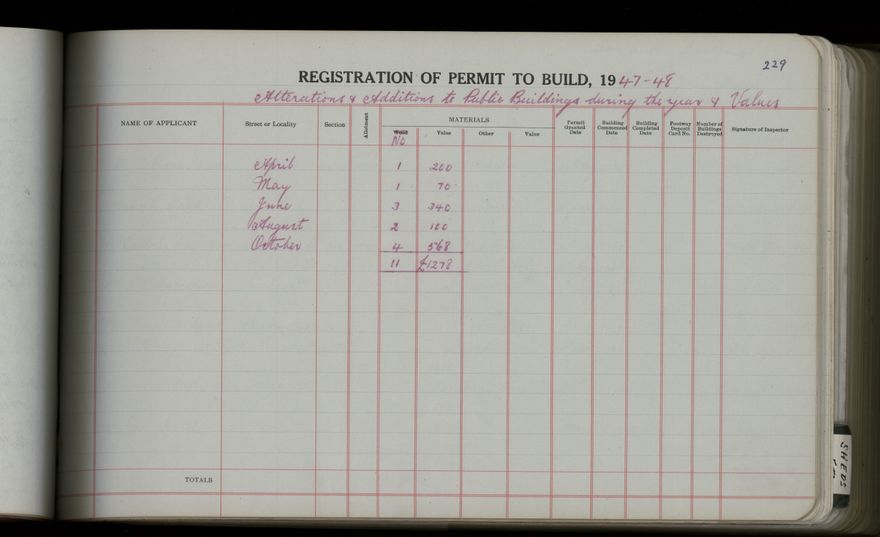 229
REGISTRATION OF PERMIT TO BUILD, 1947-48
Alterations & Additions to Public Buildings during the year & Values
NAME OF APPLICANT Street or Locality Section Allotment MATERIALS Permit Granted Date Building Commenced Date Building Completed Date Footway Deposit Card No. Number of Buildings Destroyed Signature of Inspector
Wood Value Other Value
No
April 1 200
May 1 70
June 3 340
August 2 100
October 4 568
11 £1278
TOTALS
SHEDS